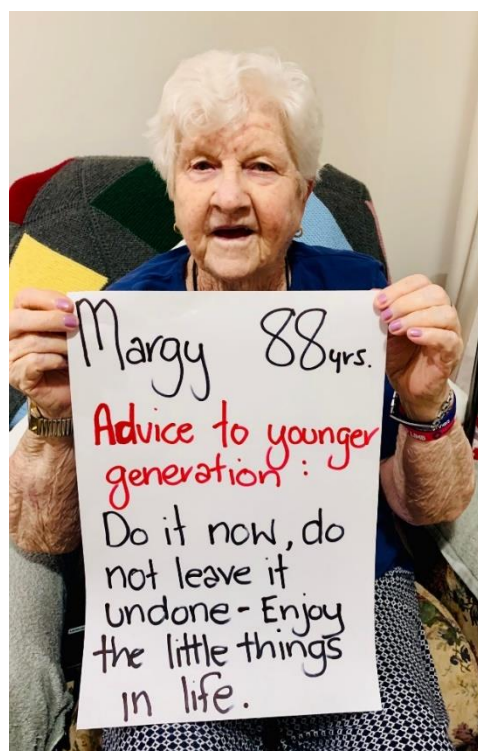 Margy 88yrs.
Advice to younger
generation:
Do it now, do
not leave it
undone - Enjoy
the little things
in life.